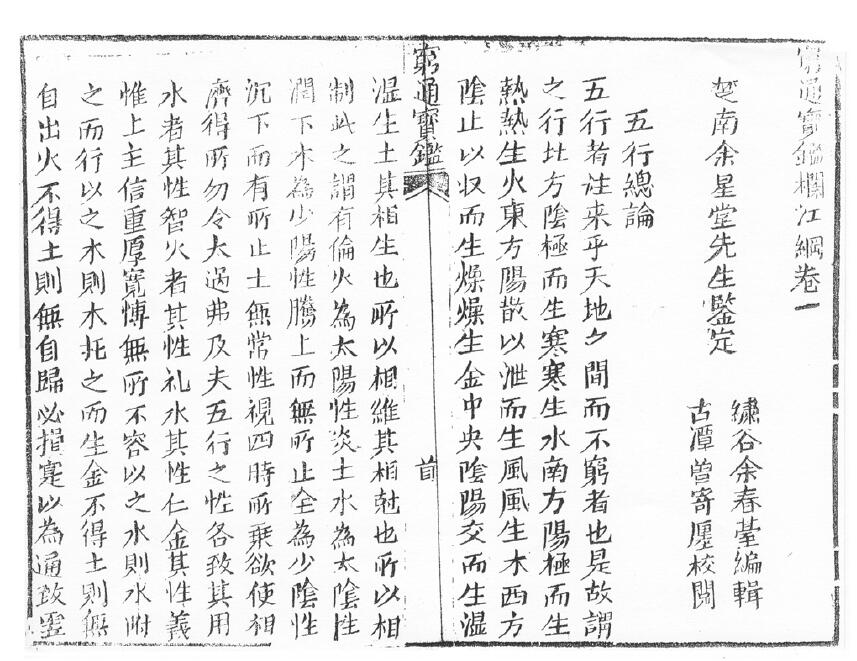 窮通寶鑑欄江綱卷一
楚南余星堂先生鑒定
繡谷余春臺編輯
古潭曾寄廛校閱
五行總論
五行者往来乎天地之間而不窮者也是故謂
之行北方陰極而生寒寒生水南方陽極而生
熱熱生火東方陽散以泄而生風風生木西方
陰止以収而生燥燥生金中央陰陽交而生濕
窮通寶鑑
首
濕生土其相生也所以相維其相尅也所以相
制此之謂有倫火為太陽性炎上水為太陰性
潤下木為少陽性騰上而無所止金為少陰性
沉下而有所止土無常性視四時所乗欲使相
濟得所勿令太過弗及夫五行之性各致其用
水者其性智火者其性礼木其性仁金其性義
惟土主信重厚寬博無所不容以之水則水附
之而行以之木則木托之而生金不得土則無
自出火不得土則無自歸必損寔以為通致虛